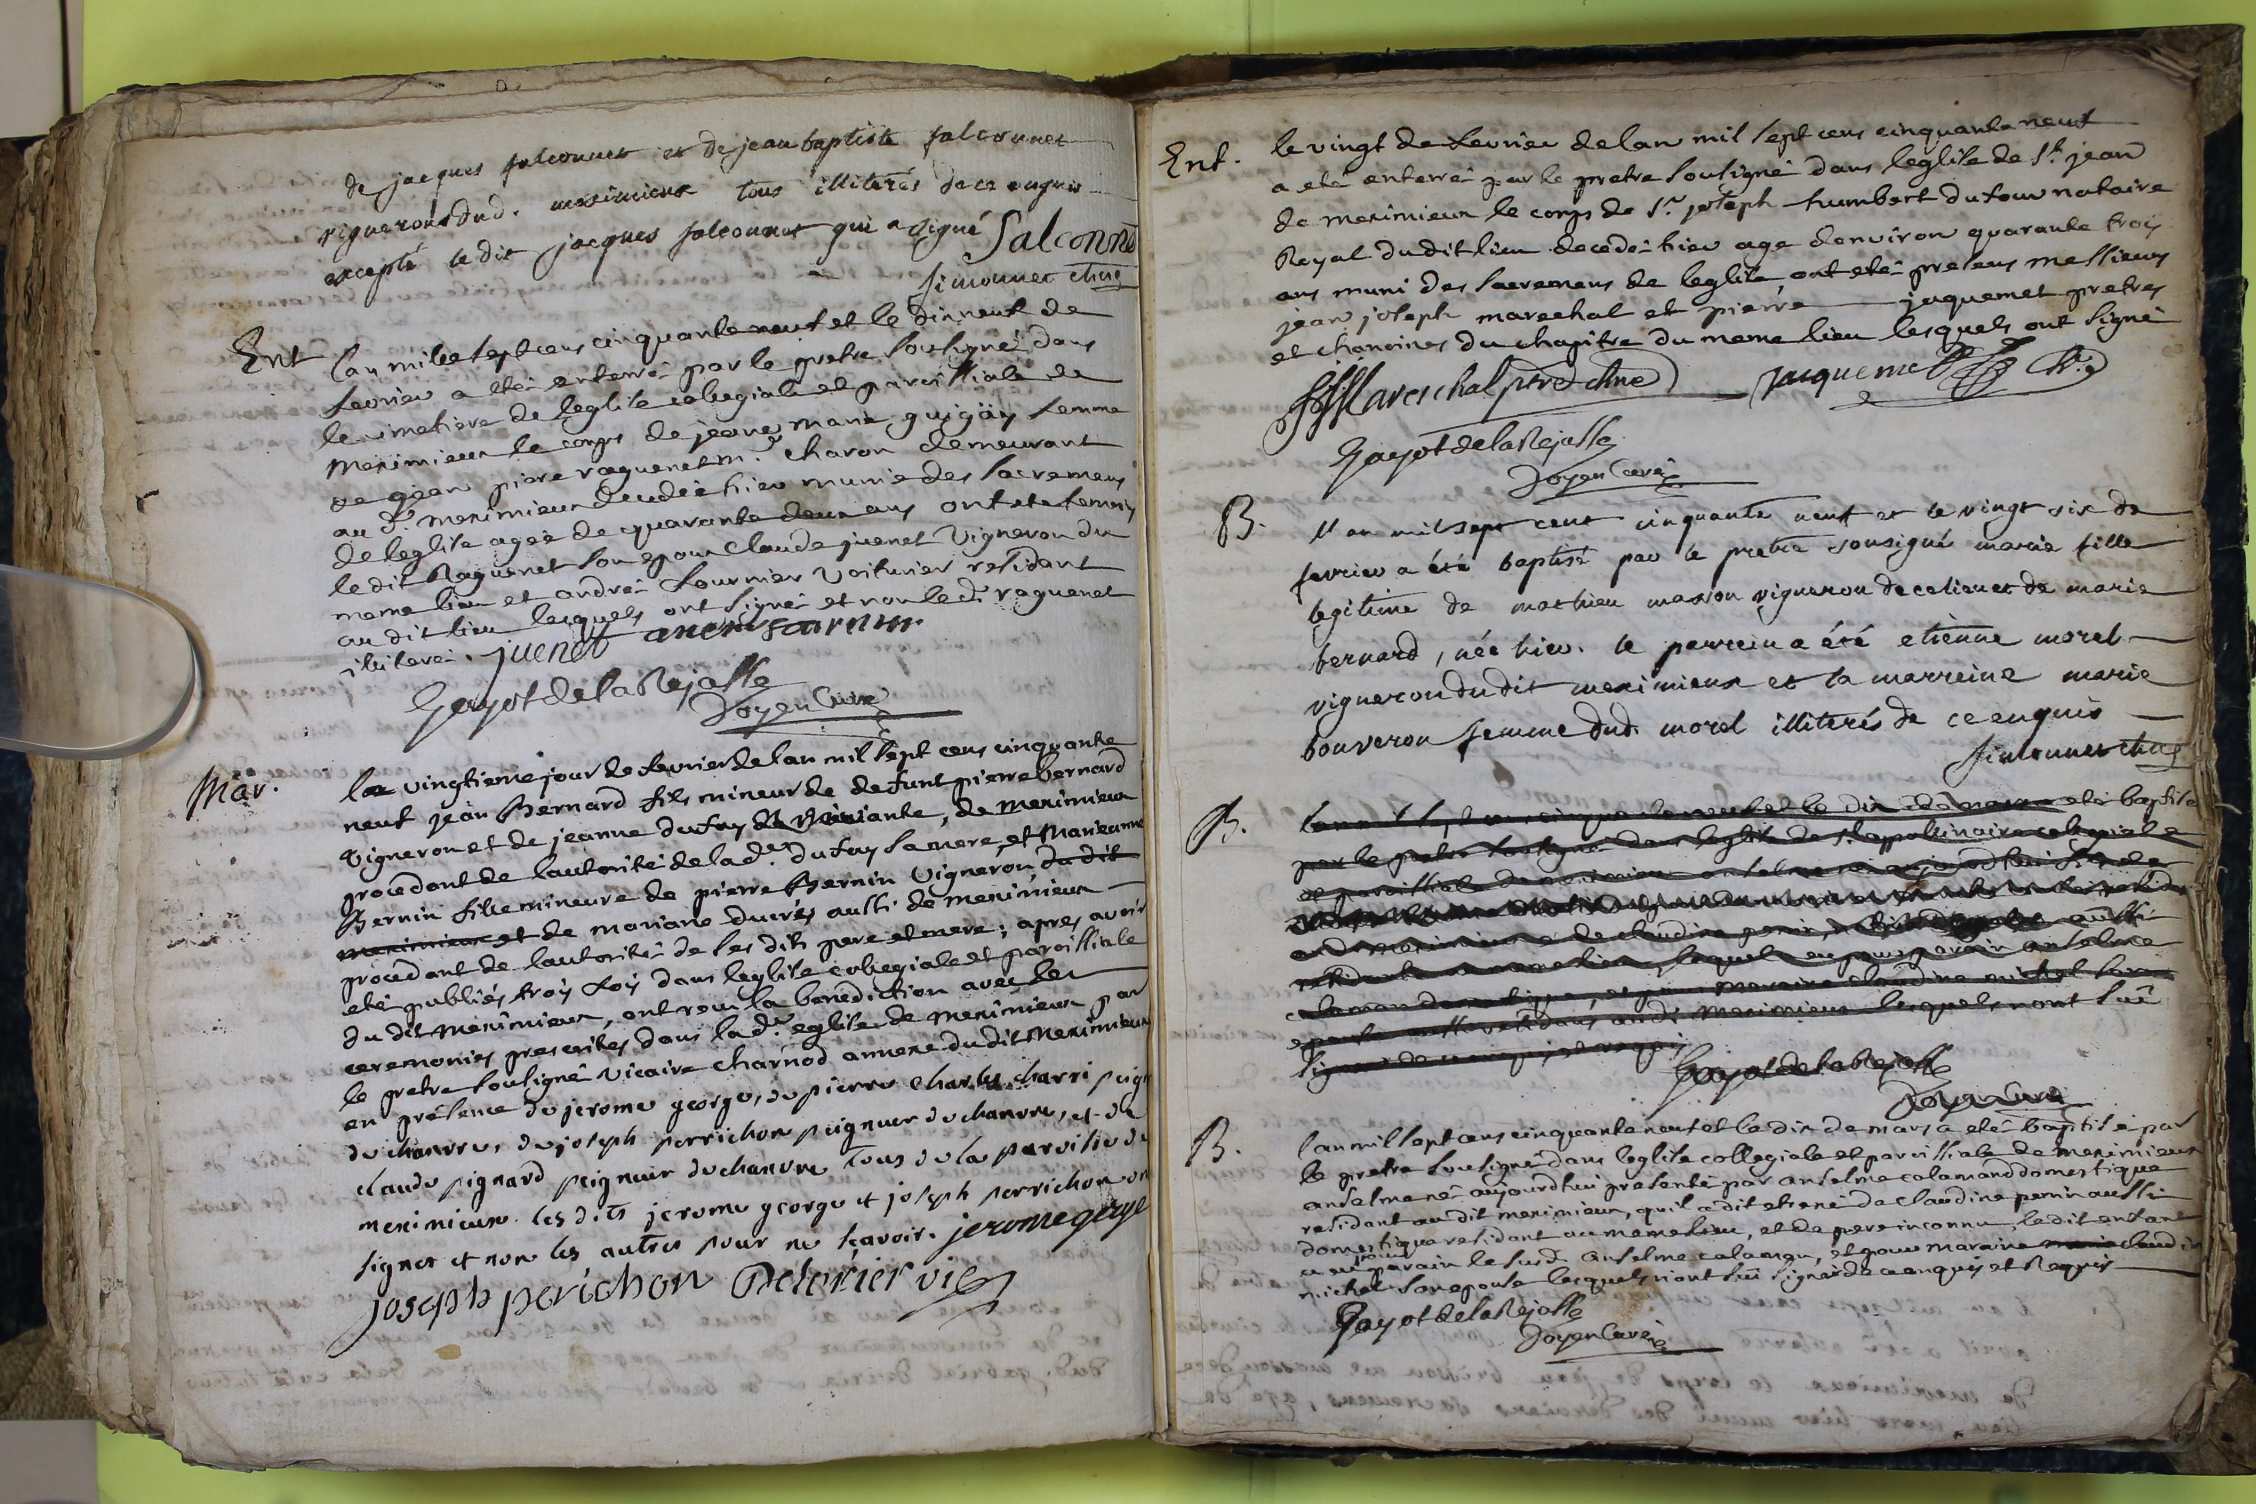 de jacques falconnet et de jean baptiste falconnet
vignerons dud. meximieux tous illiterés de ce enquis
excepté le dit jacques falconnet qui a signé falconnet
simonnet
Ent lan mille sept cens cinquante neuf et le dix neuf de
fevrier a eté enterré par le pretre soussigné dans
le cimetiere de leglise collegiale et paroissiale de
meximieux le corps de jeane marie femme
de jean piere raquenet m.e charon demeurant
au d. meximieux decedée hier munie des sacremens
de leglise agée de quarante deux ans ont eté temoins
le dit Raquenet son epoux Claude juenet Vigneron du
meme lieu et andré fournier Voiturier residant
au dit lieu lesquels ont signé et non le d. raquenet
illiteré. juenet andré fournier
Gayot de la Rejasse
Doyen Curé
Mar. le vingtieme jour de fevrier de lan mil sept cens cinquante
neuf jean Bernard fils mineur de defunt pierre bernard
Vigneron et de jeanne dufay de meximieux
procedant de lautorité de la d.e dufay sa mere, et Marieanne
Bernin fille mineure de pierre Bernin Vigneron du dit
meximieux et de mariane ducrés aussi de meximieux
procedant de lautorité de ses dits pere et mere; apres avoir
eté publiés trois fois dans leglise collegiale et paroissiale
du dit Meximieux, ont reçu la benediction avec les
ceremonies prescrites dans la d.e eglise de meximieux par
le pretre soussigné Vicaire charnod annexe du dit Meximieux
en présence de jerome george, de pierre Charles charri peign
de chanvre, de joseph perrichon peigneur de chanvre, et de
claude pignard peigneur de chanvre tous de la paroisse de
meximieux. les dits jerome george et joseph perrichon on
signer et non les autres pour ne sçavoir. jerome gorge
joseph perichon vic
Ent. le vingt de fevrier de lan mil sept cens cinquante neuf
a eté enterré par le pretre soussigné dans leglise de St. jean
de meximieux le corps de Sr joseph humbert dufour notaire
Royal du dit lieu decedé hier age denviron quarante trois
ans muni des sacremens de leglise, ont eté presens messieurs
jean joseph marechal et pierre jaquemet pretres
et chanoines du chapitre du meme lieu lesquels ont signé
Mareschal ptre chne jacquemet
Gayot de la Rejasse
Doyen Curé
B. l'an mil sept cent cinquante neuf et le vingt six de
fevrier a été baptisé par le pretre sousigné marie fille
legitime de mathieu masson vigneron de ce lieu et de marie
bernard, née hier. le parrein a été etienne morel
vigneron du dit meximieux et la marreine marie
bouveron femme dud. morel illiterés de ce enquis
simonnet
B. lan mil sept cens cinquante neuf et le dix de mars a eté baptisé
par le pretre soussigné dans leglise de St. appolinaire collegiale
et paroissiale de meximieux anselme né aujourdhui fils de
au d. meximieux et de claudine perin, aussi
residante au meme lieu, lequel a eu pour parain anselme
calaman domestique, et pour maraine claudine michel son
epouse aussi residans au d. meximieux lesquels nont sceû
signer de ce enquis et requis
Gayot de la Rejasse
Doyen Curé
B. lan mil sept cens cinquante neuf et le dix de mars a eté baptisé par
le pretre soussigné dans leglise collegiale et paroissiale de meximieux
anselme né aujourdhui presenté par anselme calamand domestique
residant au dit meximieux, quil a dit etre né de Claudine perrin aussi
domestique residant au meme lieu, et de pere inconnu, le dit enfant
a eu pour parain le susd. anselme calaman, et pour maraine marie claudin
michel son epouse lesquels nont sceû signer de ce enquis et Requis
Gayot de la Rejasse
Doyen Curé